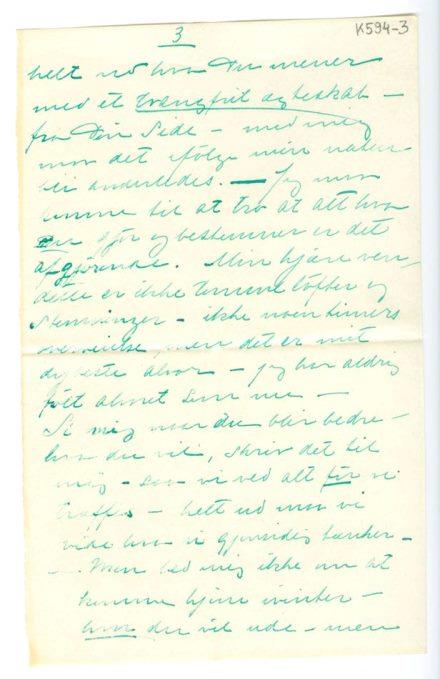 K594-3
3
helt ud hva Du mener
med et tvangfrit ægteskab –
fra Din Side – med mig
maa det ifølge min natur
bli anderledes. — Jeg maa
kunne tro at alt hva
gjør og bestemmer er det
afgjørende. Min kjære ven,
dette er ikke tomme løfter og
Stemninger – ikke noen timers
overveielse, men det er mit
dybeste alvor – jeg har aldrig
følt alvoret som nu –
Si mig naar du blir bedre –
hva du vil, skriv det til
mig – saa vi ved alt før vi
træffes – helt ud maa vi
vide hva vi gjensidig tænker –
– Men bed mig ikke om at
komme hjem i vinter –
hvor du vil ude – men